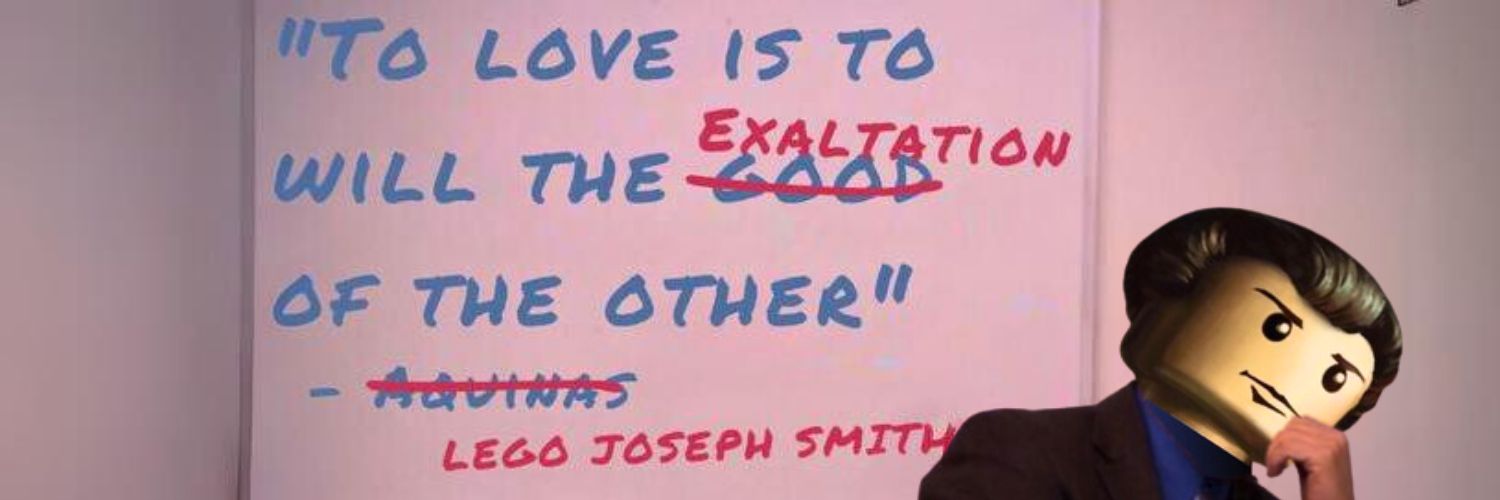 "To love is to
Exaltation
will the good
of the other"
- Aquinas
Lego Joseph Smith